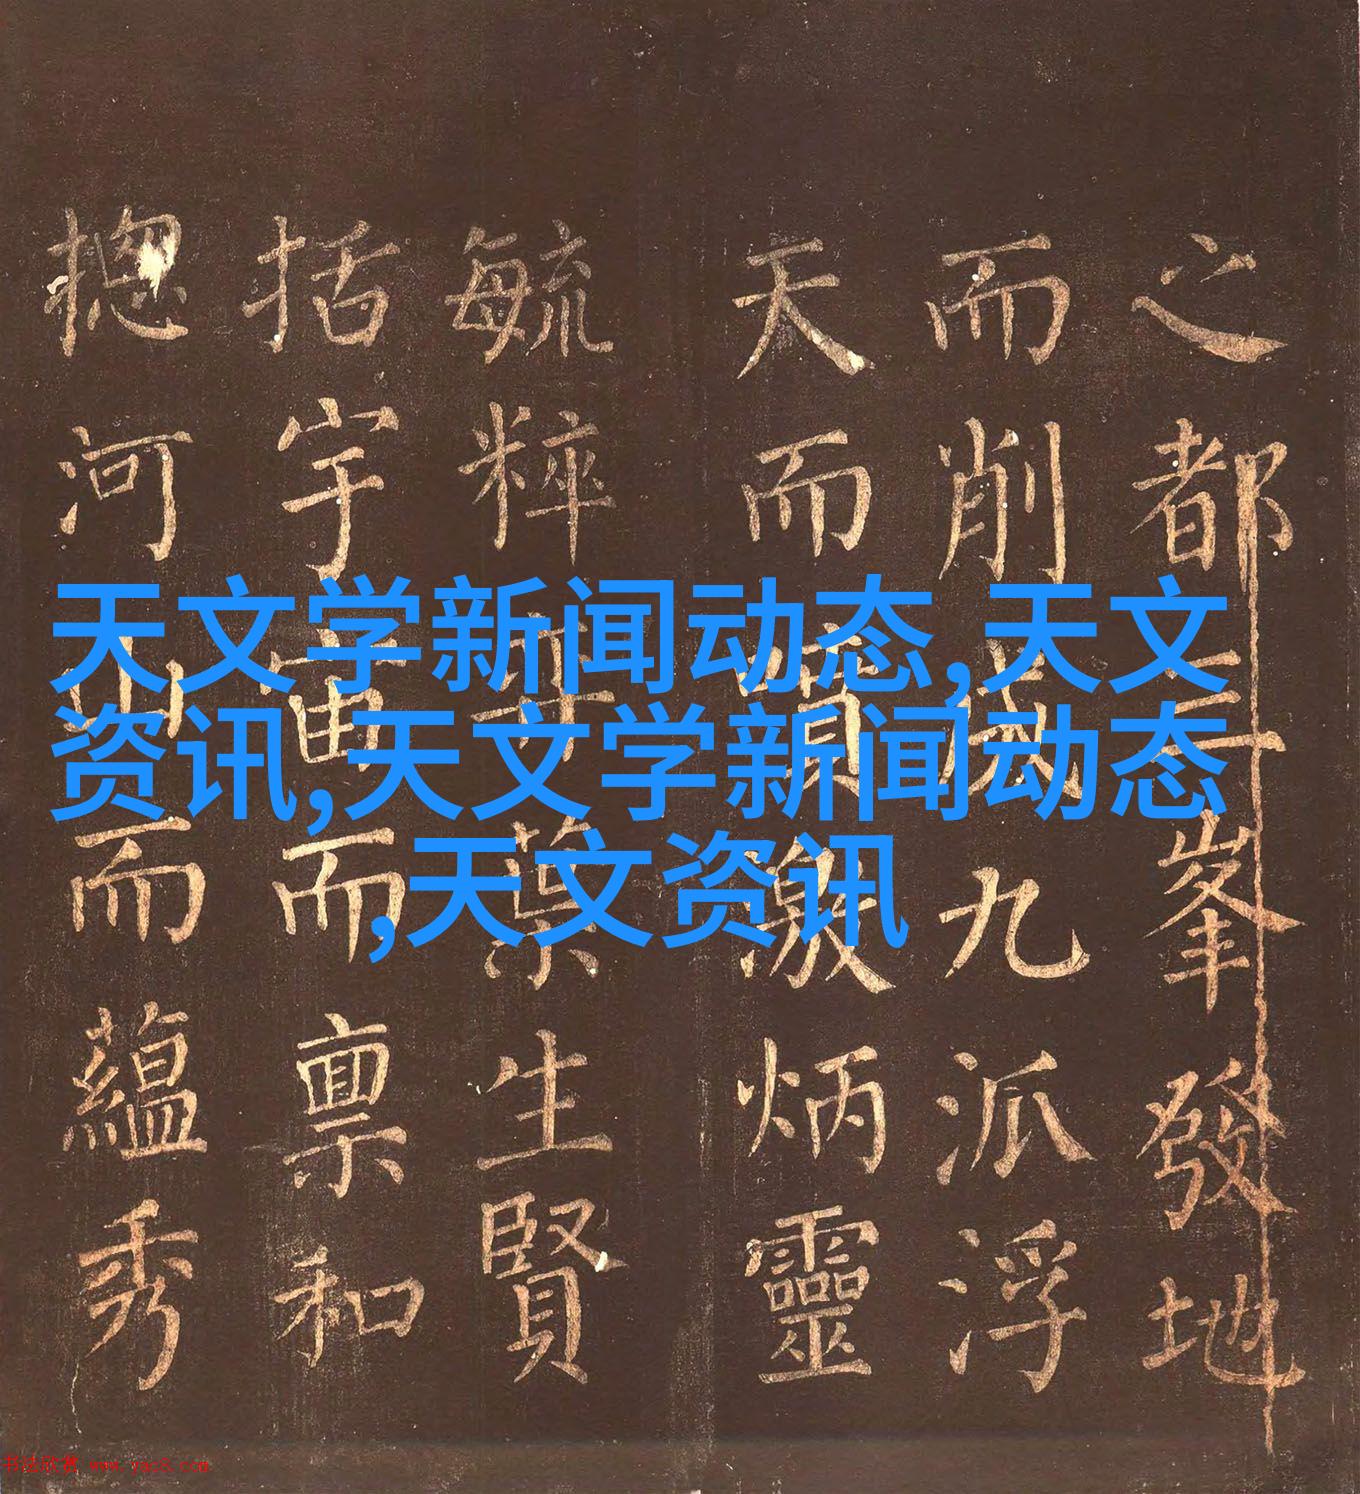 天文学新闻动态,天文
资讯,天文学新闻动态
,天文资讯
之都三峯發地
而削成九派浮
天而貫激炳靈
毓粹葉生賢
括宇宙而禀和
揔河山而蘊秀
书法欣赏 www.yac8.com